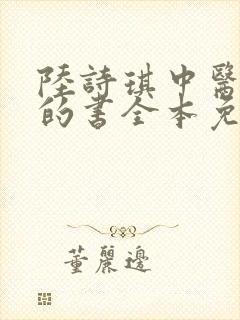 陸詩琪中醫
的書全本免
董麗邊